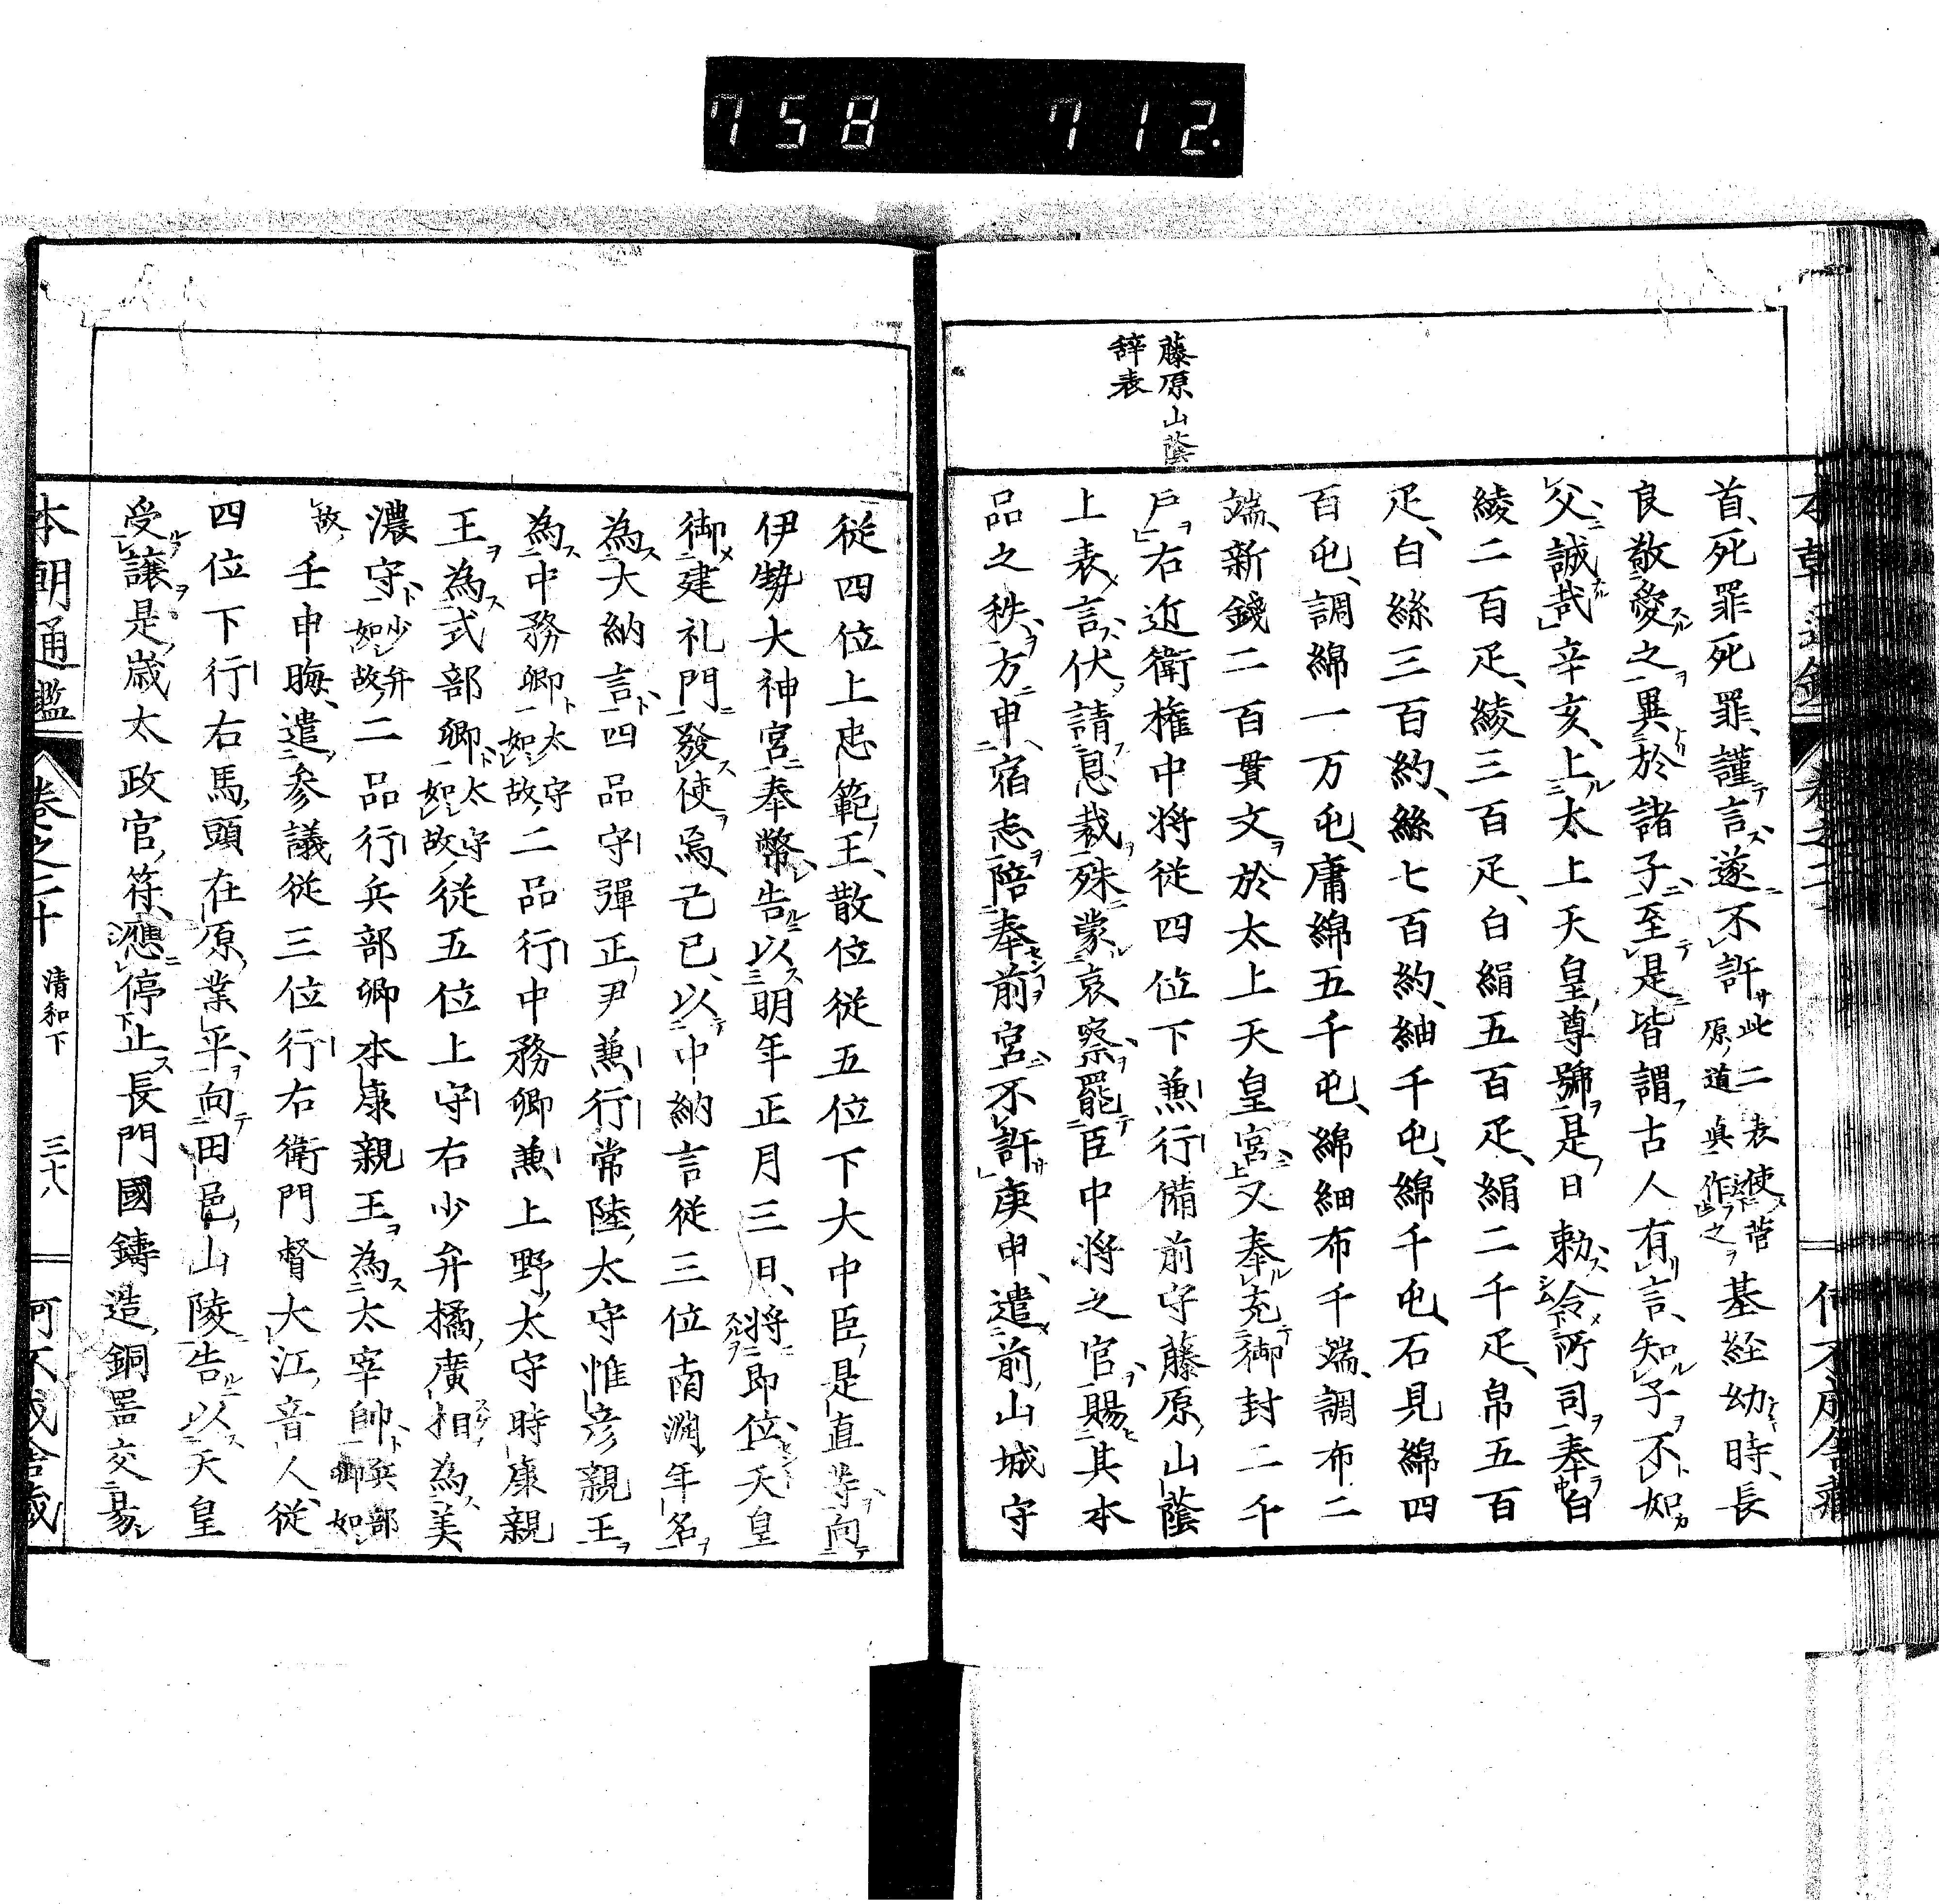 758 712.
藤原山蔭
辞表
首、死罪死罪、謹言、遂不許、此二表使菅原道真作之、基経幼時、長
良敬愛之異於諸子、至是皆謂古人有言、知子不如
父、誠哉、辛亥、上太上天皇尊號、是日勅令所司奉白
綾二百疋、綾三百疋、白絹五百疋、絹二千疋、帛五百
疋、白絲三百約、絲七百約、紬千屯、綿千屯、石見綿四
百屯、調綿一万屯、庸綿五千屯、綿細布千端、調布二
端、新錢二百貫文於太上天皇宮、又奉充御封二千
戸、右近衛権中将従四位下兼行備前守藤原山蔭
上表言、伏請息裁殊蒙哀察、罷臣中将之官、賜其本
品之秩、方申宿志、陪奉前宮、不許、庚申、遣前山城守
従四位上忠範王、散位従五位下大中臣是直等向
伊勢大神宮奉幣、告以明年正月三日、将即位、天皇
御建礼門發使焉、己巳、以中納言従三位南渕年名
為大納言、四品守彈正尹兼行常陸太守惟彦親王
為中務卿、太守如故、二品行中務卿兼上野太守時康親
王為式部卿、太守如故、従五位上守右少弁橘廣相為美
濃守、少弁如故、二品行兵部卿本康親王為太宰帥、兵部卿如
故、壬申晦、遣参議従三位行右衛門督大江音人、従
四位下行右馬頭在原業平、向田邑山陵告以天皇
受譲、是歳太政官符、應停止長門國鑄造銅器交易
本朝通鑑 卷之三十 清和下 三十八